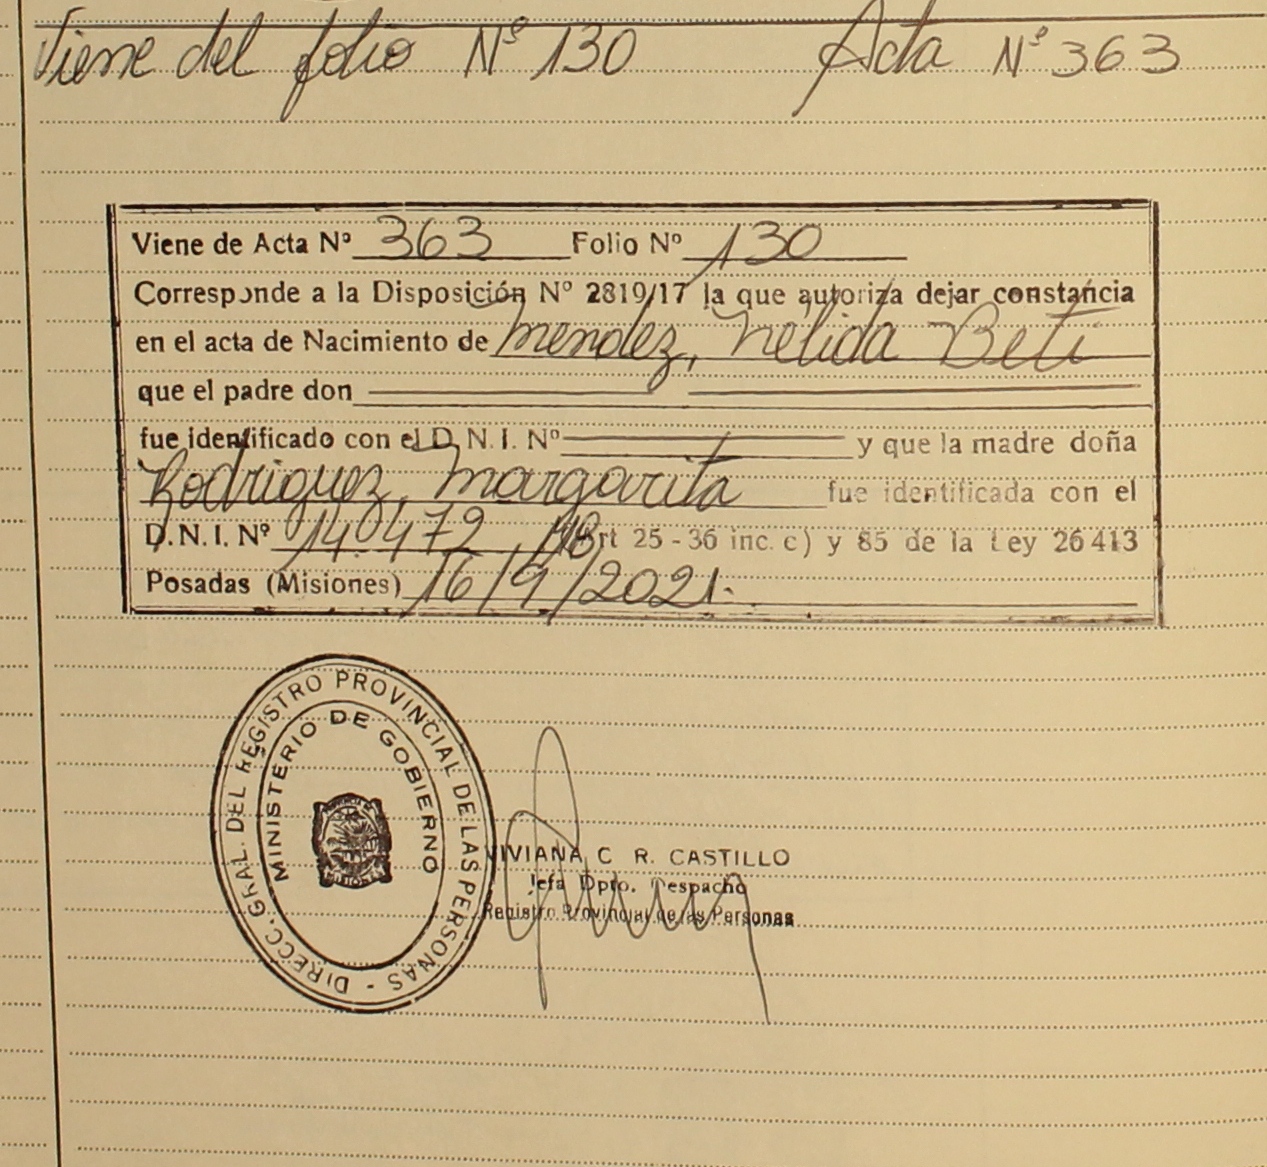 Viene del folio Nº 130 Acta Nº 363
Viene de Acta Nº 363 Folio Nº 130
Corresponde a la Disposición Nº 2819/17 la que autoriza dejar constancia
en el acta de Nacimiento de Mendez, Nélida Beti
que el padre don
fue identificado con el D.N.I. Nº y que la madre doña
Rodriguez, Margarita fue identificada con el
D.N.I. Nº rt 25-36 inc. c) y 85 de la Ley 26413
Posadas (Misiones) 16/9/2021.
DIRECC. GRAL. DEL REGISTRO PROVINCIAL DE LAS PERSONAS -
MINISTERIO DE GOBIERNO
VIVIANA C R. CASTILLO
Jefa Dpto. Despacho
Registro Provincial de las Personas